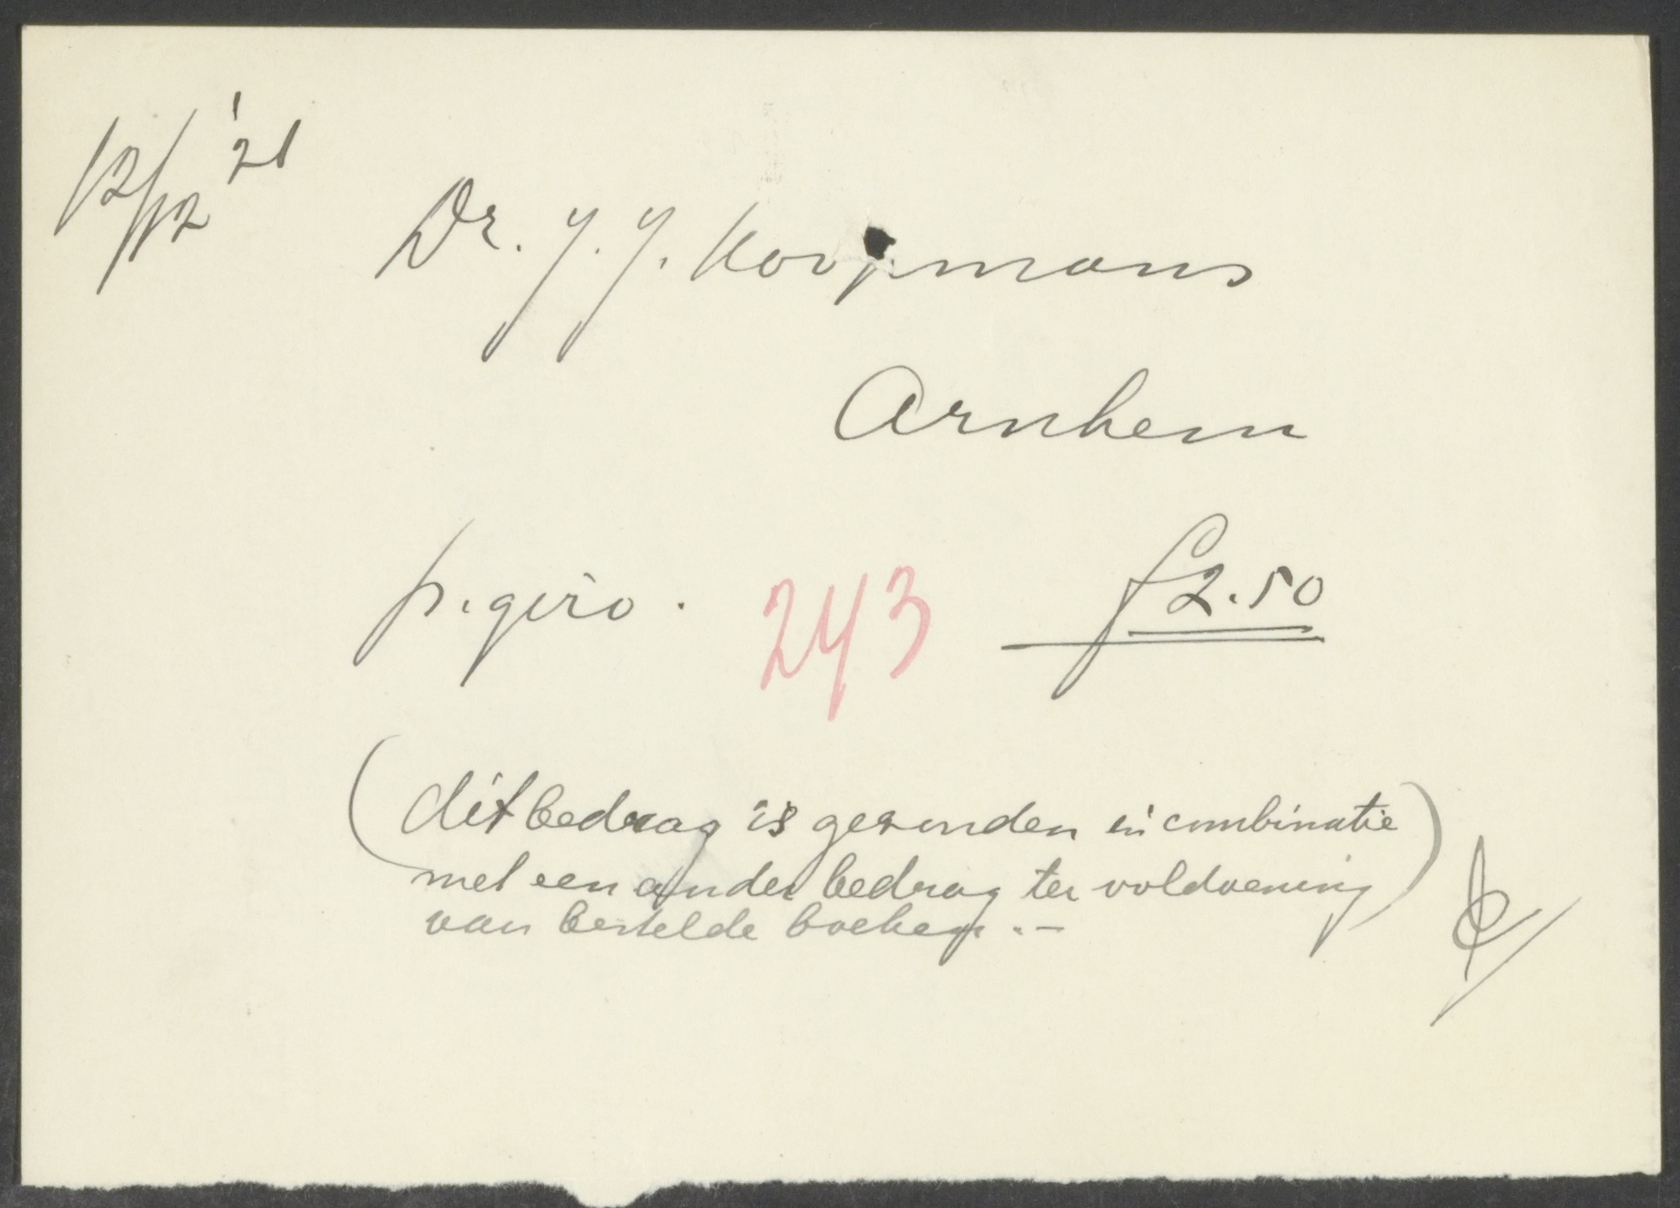 12/12 '21
Dr. J. J. Koopmans
Arnhem
p. giro. 243 f 2.50
(dit bedrag is gezonden in combinatie
met een ander bedrag ter voldoening)
van bestelde boeken. -